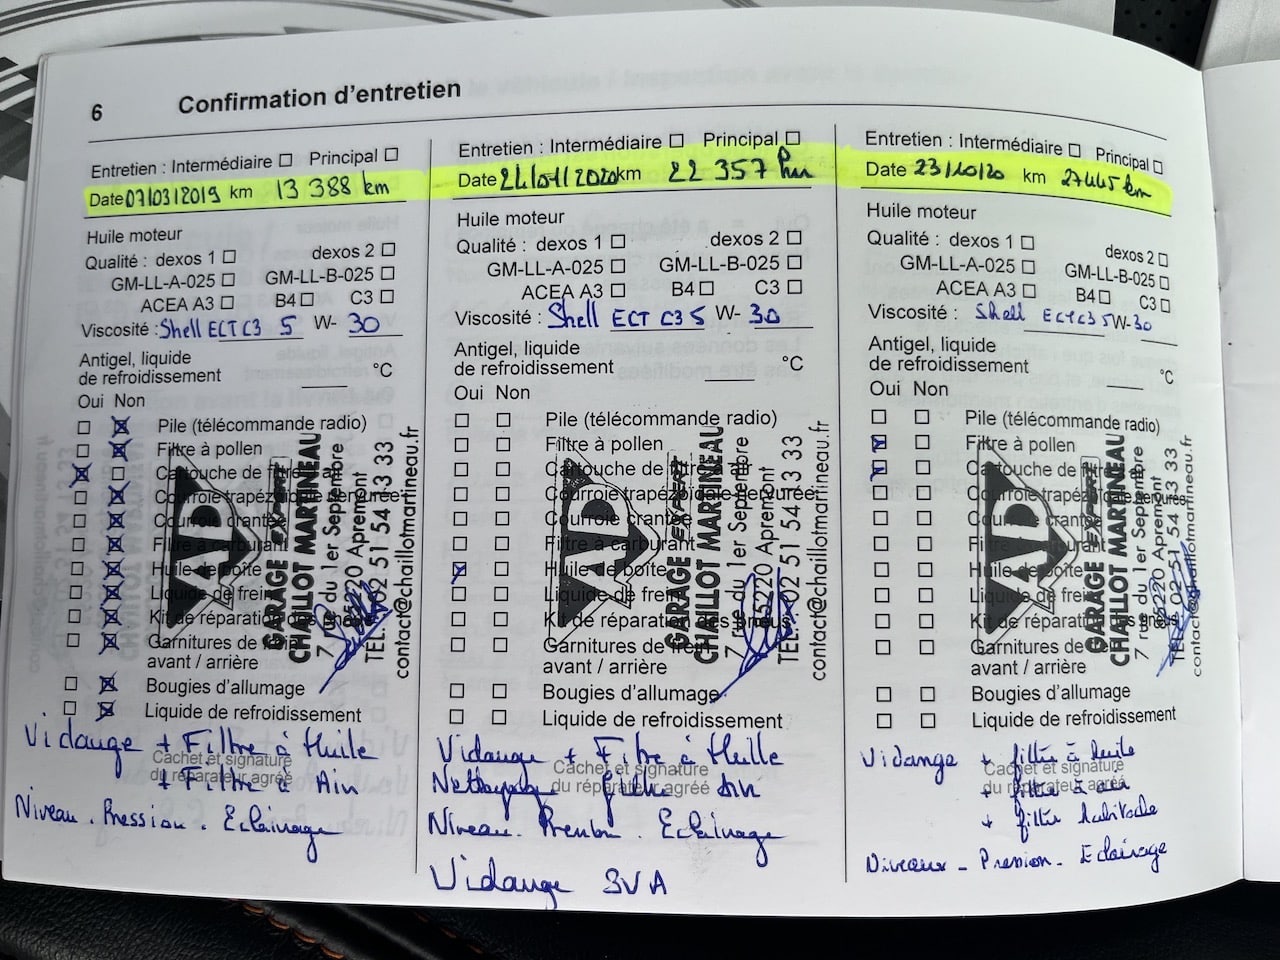 6 Confirmation d'entretien
Entretien : Intermédiaire Principal
Date 07/03/2019 km 13 388 km
Huile moteur
Qualité : dexos 1 dexos 2
GM-LL-A-025 GM-LL-B-025
ACEA A3 B4 C3
Viscosité : Shell ECT C3 5 W- 30
Antigel, liquide
de refroidissement °C
Oui Non
Pile (télécommande radio)
Filtre à pollen
Cartouche de filtre à air
Courroie trapézoïdale denurée
Courroie crantée
Filtre à carburant
Huile de boîte
Liquide de frein
Kit de réparation des pneus
Garnitures de frein
avant / arrière
Bougies d'allumage
Liquide de refroidissement
Cachet et signature
du réparateur agréé
AD EXPERT
GARAGE
CHAILLOT MARTINEAU
7 rue du 1er Septembre
85220 Apremont
TEL. 02 51 54 53 33
contact@chaillotmartineau.fr
Vidange + Filtre à Huile
+ Filtre à Air
Niveau . Pression . Eclairage
Entretien : Intermédiaire Principal
Date km 22 357 km
Huile moteur
Qualité : dexos 1 dexos 2
GM-LL-A-025 GM-LL-B-025
ACEA A3 B4 C3
Viscosité : Shell ECT C3 5 W- 30
Antigel, liquide
de refroidissement °C
Oui Non
Pile (télécommande radio)
Filtre à pollen
Cartouche de filtre à air
Courroie trapézoïdale denurée
Courroie crantée
Filtre à carburant
Huile de boîte
Liquide de frein
Kit de réparation des pneus
Garnitures de frein
avant / arrière
Bougies d'allumage
Liquide de refroidissement
Cachet et signature
du réparateur agréé
AD EXPERT
GARAGE
CHAILLOT MARTINEAU
7 rue du 1er Septembre
85220 Apremont
TEL. 02 51 54 53 33
contact@chaillotmartineau.fr
Vidange + Filtre à Huile
Nettoyage filtre Air
Niveau . Pression . Eclairage
Vidange BVA
Entretien : Intermédiaire Principal
Date 23/10/20 km 27445 km
Huile moteur
Qualité : dexos 1 dexos 2
GM-LL-A-025 GM-LL-B-025
ACEA A3 B4 C3
Viscosité : Shell ECT C3 5 W- 30
Antigel, liquide
de refroidissement °C
Oui Non
Pile (télécommande radio)
Filtre à pollen
Cartouche de filtre à air
Courroie trapézoïdale denurée
Courroie crantée
Filtre à carburant
Huile de boîte
Liquide de frein
Kit de réparation des pneus
Garnitures de frein
avant / arrière
Bougies d'allumage
Liquide de refroidissement
Cachet et signature
du réparateur agréé
AD EXPERT
GARAGE
CHAILLOT MARTINEAU
7 rue du 1er Septembre
85220 Apremont
TEL. 02 51 54 53 33
contact@chaillotmartineau.fr
Vidange + filtre à huile
+ filtre à air
+ filtre habitacle
Niveaux - Pression - Eclairage